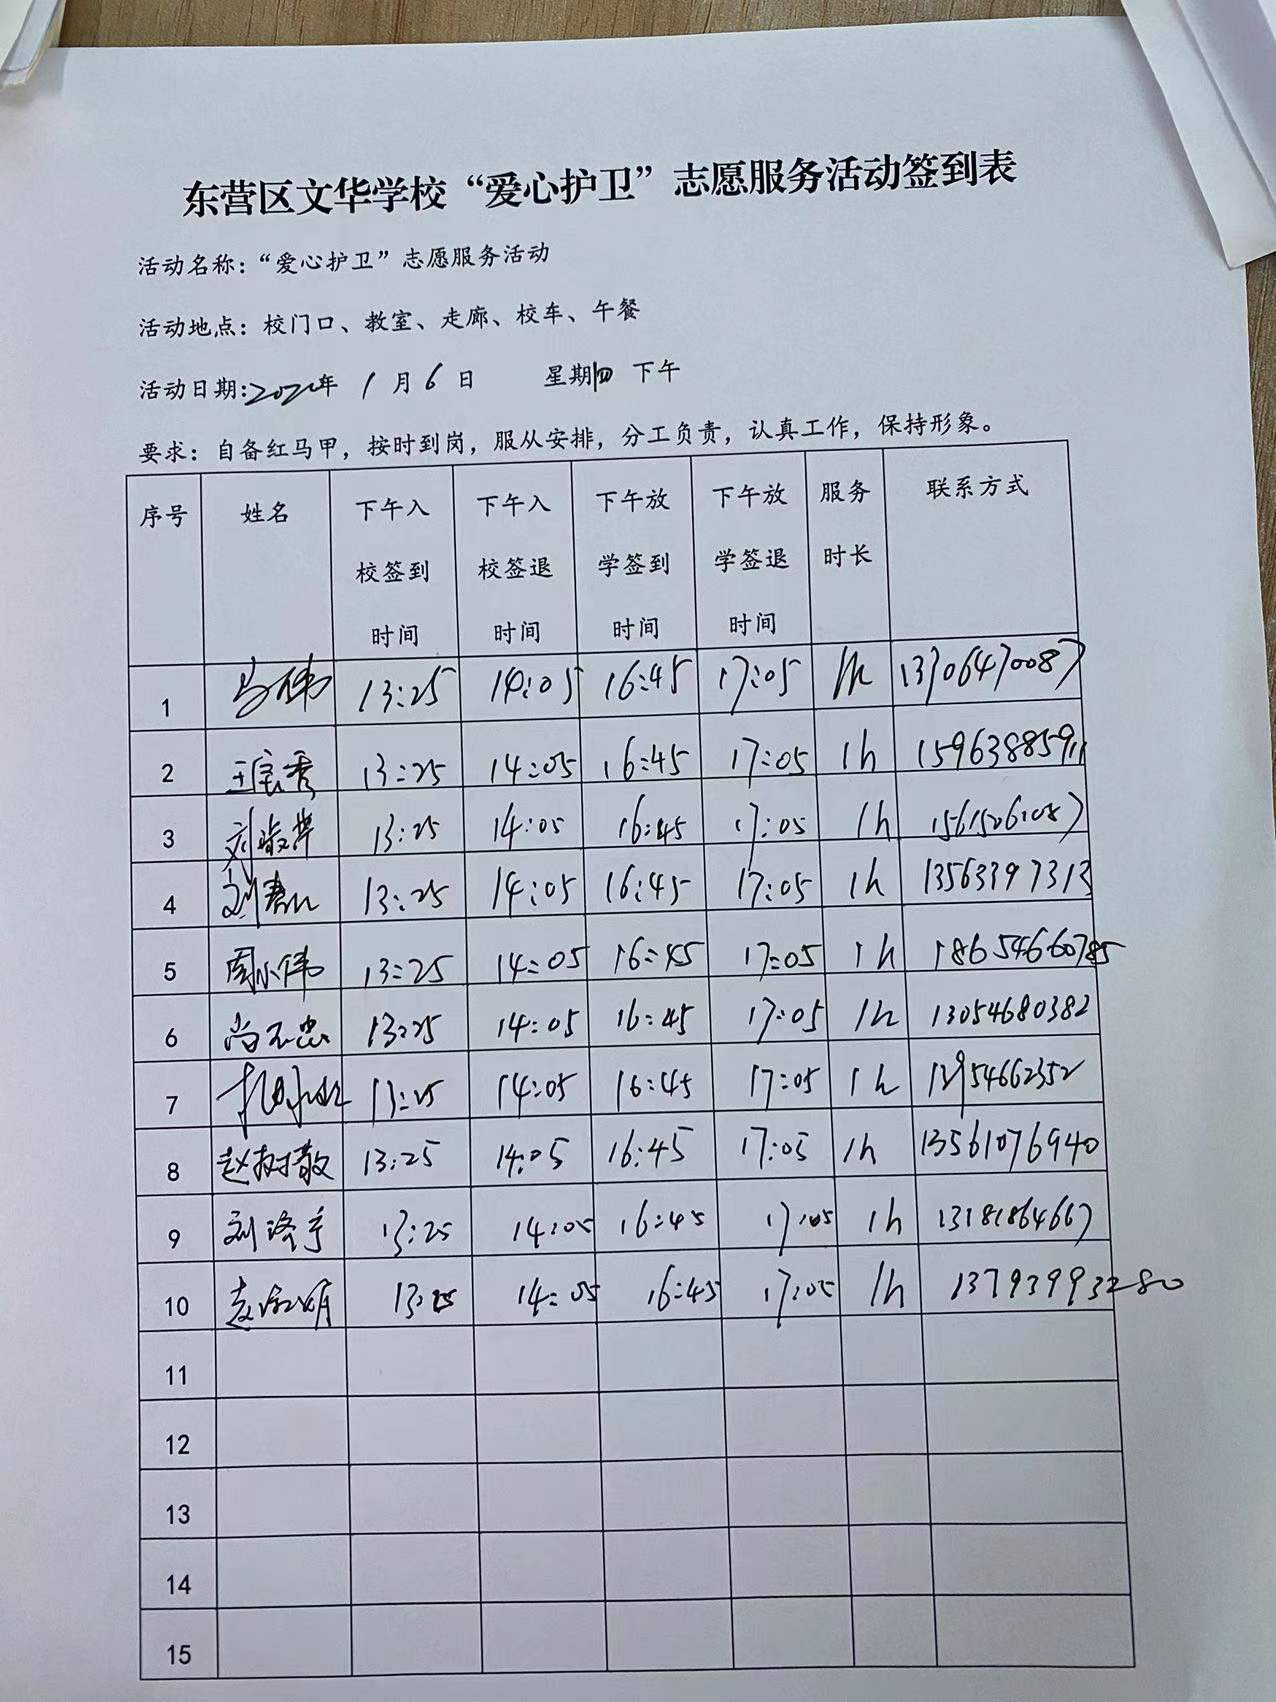 东营区文华学校“爱心护卫”志愿服务活动签到表
活动名称：“爱心护卫”志愿服务活动
活动地点：校门口、教室、走廊、校车、午餐
活动日期: 年 1 月 6 日 星期四 下午
要求：自备红马甲，按时到岗，服从安排，分工负责，认真工作，保持形象。
序号 姓名 下午入校签到时间 下午入校签退时间 下午放学签到时间 下午放学签退时间 服务时长 联系方式
1 马伟 13:25 14:05 16:45 17:05 1h 13706470087
2 王宝秀 13:25 14:05 16:45 17:05 1h 15963885911
3 刘 13:25 14:05 16:45 17:05 1h 15615061087
4 刘 13:25 14:05 16:45 17:05 1h 13563397313
5 周小伟 13:25 14:05 16:45 17:05 1h 18654660785
6 尚 忠 13:25 14:05 16:45 17:05 1h 13054680382
7 13:25 14:05 16:45 17:05 1h
8 赵树敬 13:25 14:05 16:45 17:05 1h 13561076940
9 刘 13:25 14:05 16:45 17:05 1h 13181864667
10 13:25 14:05 16:45 17:05 1h 13793993280
11
12
13
14
15